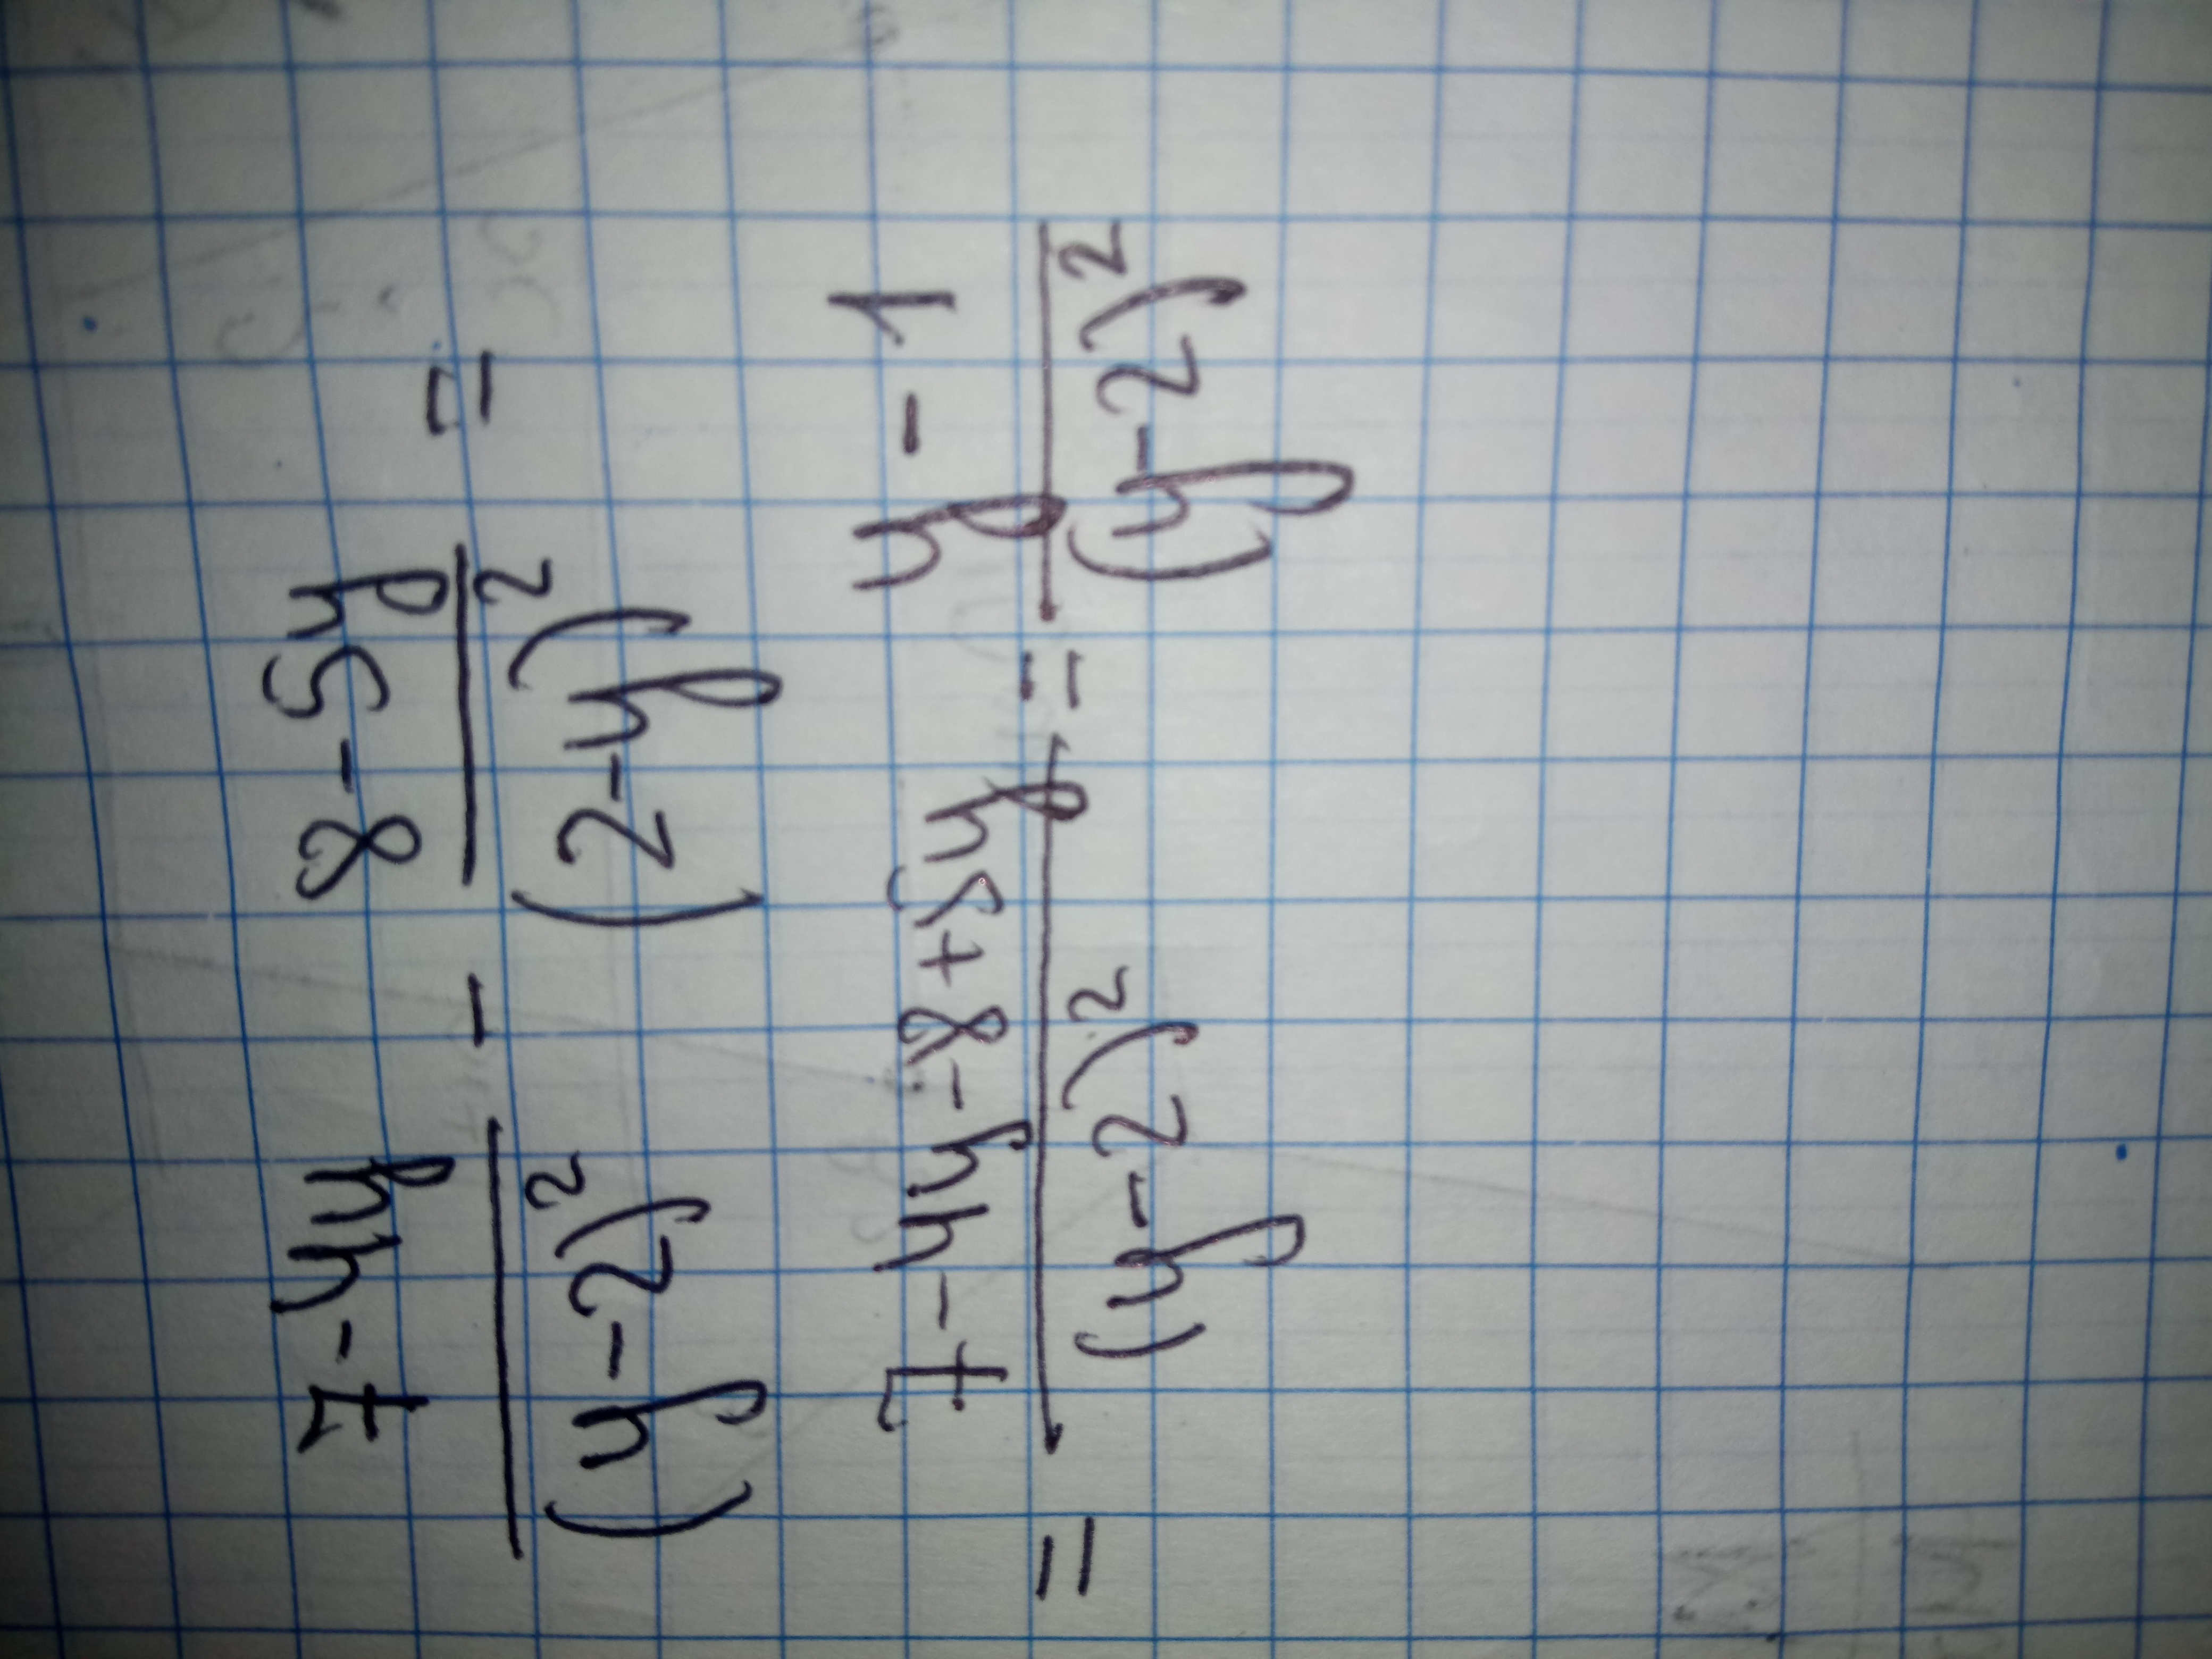 (7-4y)/(y-2)² - (8-5y)/(2-y)² =
= (7-4y-8+5y)/(y-2)² = (y-1)/(y-2)²